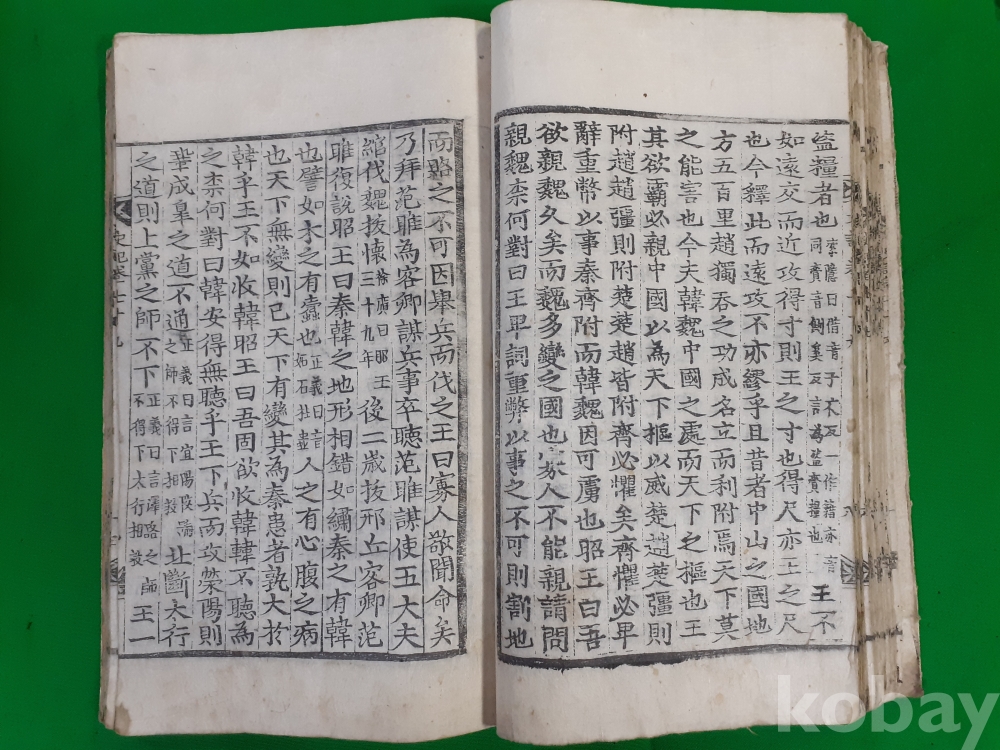 盜糧者也索隱曰借音子夜反一作藉亦音同賚音側奚反言為盜賚糧也王不
如遠交而近攻得寸則王之寸也得尺亦王之尺
也今釋此而遠攻不亦繆乎且昔者中山之國地
方五百里趙獨吞之功成名立而利附焉天下莫
之能害也今夫韓魏中國之處而天下之樞也王
其欲霸必親中國以為天下樞以威楚趙楚彊則
附趙趙彊則附楚楚趙皆附齊必懼矣齊懼必卑
辭重幣以事秦齊附而韓魏因可虜也昭王曰吾
欲親魏久矣而魏多變之國也寡人不能親請問
親魏柰何對曰王卑詞重幣以事之不可則割地
而賂之不可因舉兵而伐之王曰寡人敬聞命矣
乃拜范雎為客卿謀兵事卒聽范雎謀使五大夫
綰伐魏拔懷徐廣曰昭王三十九年後二歲拔邢丘客卿范
雎復說昭王曰秦韓之地形相錯如繡秦之有韓
也譬如木之有蠹也正義曰音妬石柱蟲人之有心腹之病
也天下無變則已天下有變其為秦患者孰大於
韓乎王不如收韓昭王曰吾固欲收韓韓不聽為
之柰何對曰韓安得無聽乎王下兵而攻滎陽則
鞏成皋之道不通正義曰言宜陽陜虢之師不得下相救北斷太行
之道則上黨之師不下正義曰言澤潞之師不得下太行相救王一
史記卷七十九
kobay